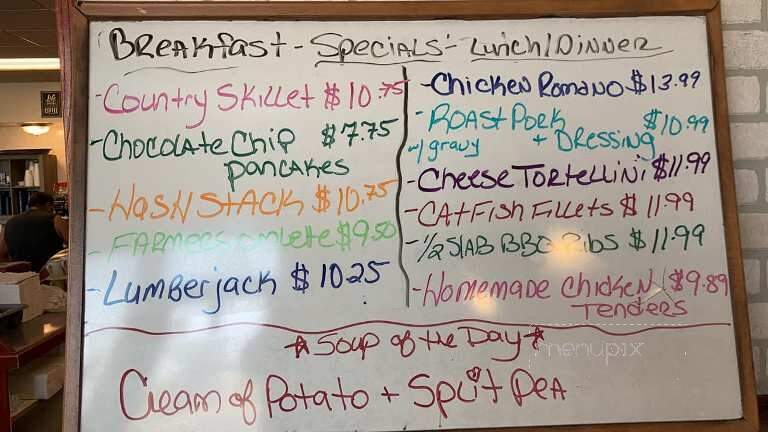 Breakfast - Specials - Lunch/Dinner
- Country Skillet $10.75
- Chocolate Chip $7.75
pancakes
- Hash Stack $10.75
- Farmers omlete $9.50
- Lumberjack $10.25
- Chicken Romano $13.99
- Roast Pork $10.99
w/ gravy + Dressing
- Cheese Tortellini $11.99
- Catfish Fillets $11.99
- 1/2 Slab BBQ Ribs $11.99
- Homemade Chicken $9.89
Tenders
Soup of the Day
Cream of Potato + Split Pea
menupix